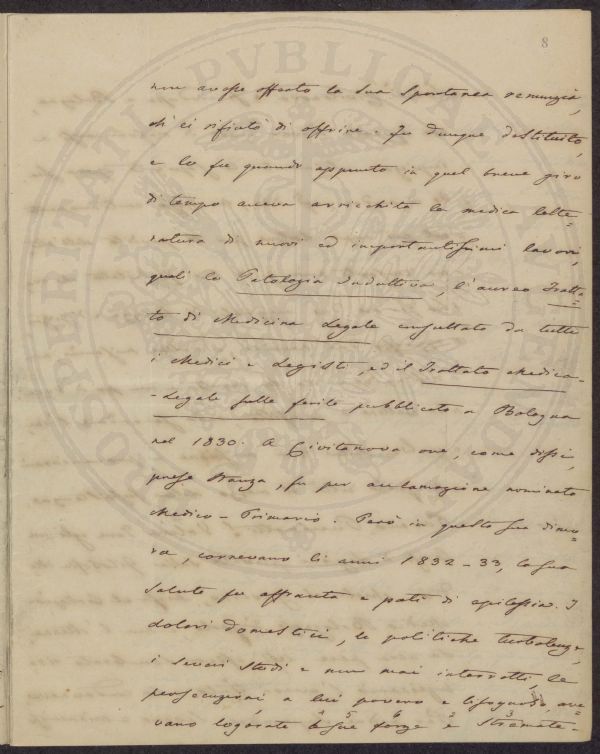 8
non avesse offerto la sua spontanea renunzia,
ch'ei rifiutò di offrire. Fu dunque destituito,
e lo fu quando appunto in quel breve giro
di tempo aveva arricchita la medica lette=
ratura di nuovi ed importantissimi lavori,
quali la Patologia Induttiva, l'aureo Tratta
to di Medicina Legale consultato da tutti
i Medici e Legisti, ed il Trattato Medico-
-Legale sulle ferite pubblicato a Bologna
nel 1830. A Civitanova ove, come dissi,
prese stanza, fu per acclamazione nominato
Medico-Primario. Però in questa sua dimo=
ra, correvano li anni 1832-33, la sua
salute fu affranta e patì di epilessia. I
dolori domestici, le politiche turbolenze,
i severi studi e non mai interrotti, le
persecuzioni, a lui povero e bisognoso, ave
vano logorate le sue forze e stremate-